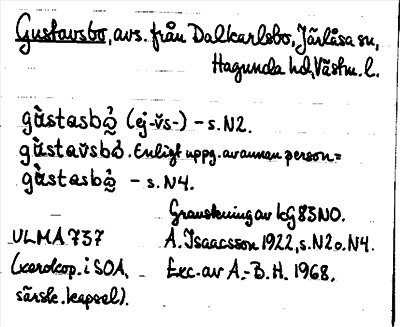 Gustavsbo, avs. från Dalkarlsbo, Järlåsa sn,
Hagunda hd, Västm. l.
gùstasbǫ̀ (ej -v̌s-) - s. N2.
gùstav̌sbǫ̀. Enligt uppg. av annan person =
gùstasbǫ̀ - s. N4.
Granskning av KG 83 NO.
ULMA 737 A. Isaacsson 1922, s. N2 o. N4.
(xerokop. i SOA, Exc. av A.-B. H. 1968.
särsk. kapsel).